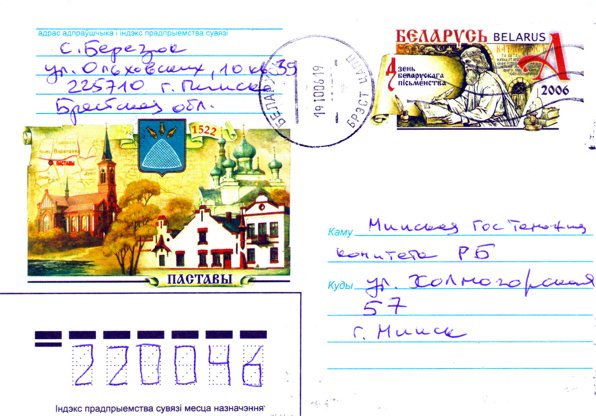 адрас адпраўшчыка і індэкс прадпрыемства сувязі
С. Березюк
ул. Ольховских, 10 кв 39
225710 г. Пинск
Брестская обл.
БЕЛАРУСЬ BELARUS
А
Дзень
беларускага
пісьменства
2006
19 10 06 19
БРЭСТ
1522
ПАСТАВЫ
ПАСТАВЫ
Каму Минская Гостаможня
комитета РБ
Куды ул. Холмогорская
57
г. Минск
220046
Індэкс прадпрыемства сувязі месца назначэння